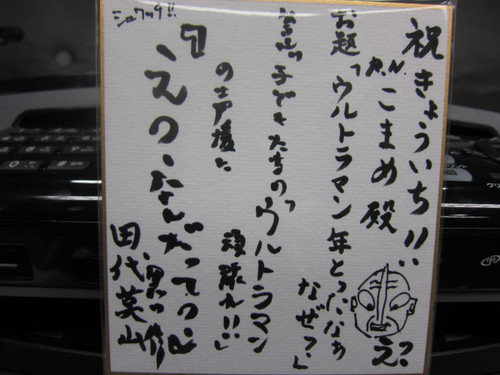 祝きょういち!!!
R.N.こまめ殿
お題
「ウルトラマン年とったなぁ
なぜ?」
答え
子どもたちの「ウルトラマン
頑張れ!!」
の声援に
『えっ、なんだっての』
田代英山
シュワッチ!!
えっ?